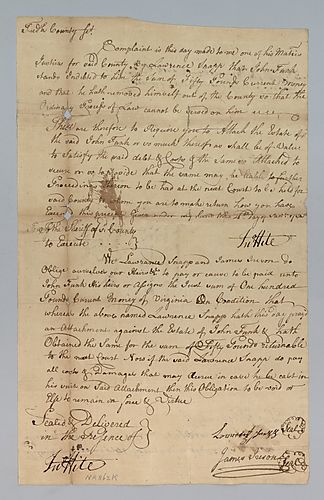 County Sst.
Complaint is this day made to me one of his Majties
Justices for said County By Lawrence Snapp that John Funk
Stands Indebted to him the Sum of Fifty Pounds Current Money
and that he hath removed himself out of the County so that the
Ordinary Process of Law cannot be Served on him
These are therefore to Require you to Attach the Estate of
the said John Funk or so much thereof as shall be of Value
to Satisfy the said debt & Costs & the Same so Attached to
secure or so provide that the same may be liable to further
Proceedings thereon to be had at the next Court to be held for
said County when you are to make return how you have
Executed this precept Given under my hand this
To the Sheriff of County
to Execute
Jn Hite
We Lawrance Snapp and James do
Oblege ourselves our Heirs &c to pay or cause to be paid unto
John Funk His heirs or Assigns the Just sum of One hundred
Pounds Current Money of Virginia On Condition that
whereas the above named Lawrence Snapp hath this day pray'd
an Attachment against the Estate of John Funk & hath
Obtained the Same for the sum of Fifty Pounds returnable
to the next Court Now if the said Lawrence Snapp do pay
all Costs & Damages that may Accrue in case he be cast in
his suit on Said Attachment then this Obligation to be void or
Else to remain in force & Virtue
Sealed & Delivered
in the Presence of
Jn Hite
James
NA862K